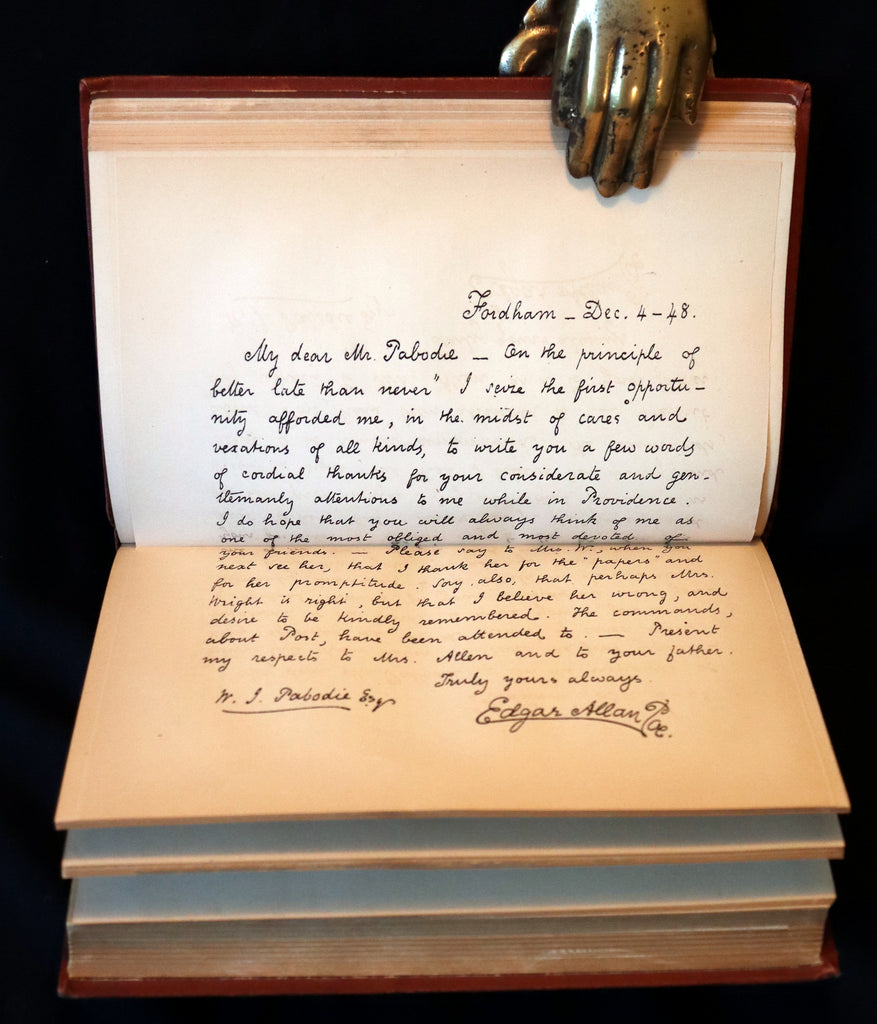 Fordham – Dec. 4 – 48.
My dear Mr. Pabodie – On the principle of
better late than never" I seize the first opportu–
nity afforded me, in the midst of cares and
vexations of all kinds, to write you a few words
of cordial thanks for your considerate and gen–
tlemanly attentions to me while in Providence.
I do hope that you will always think of me as
one of the most obliged and most devoted of
your friends. — Please say to Mrs. W., when you
next see her, that I thank her for the "papers" and
for her promptitude. Say, also, that perhaps Mrs.
Wright is right, but that I believe her wrong, and
desire to be kindly remembered. The commands,
about Post, have been attended to. — Present
my respects to Mrs. Allen and to your father.
Truly yours always
W. J. Pabodie Esqr
Edgar Allan Poe.